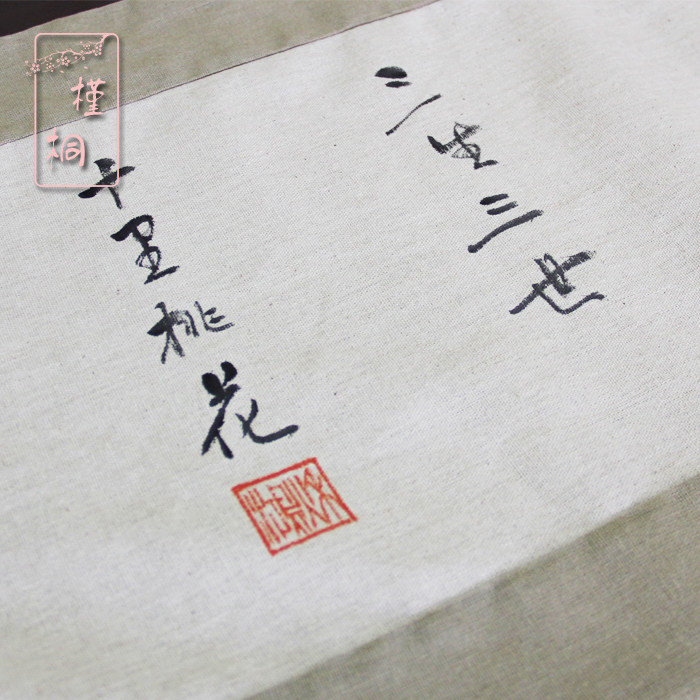 三生三世
十里桃花
槿桐